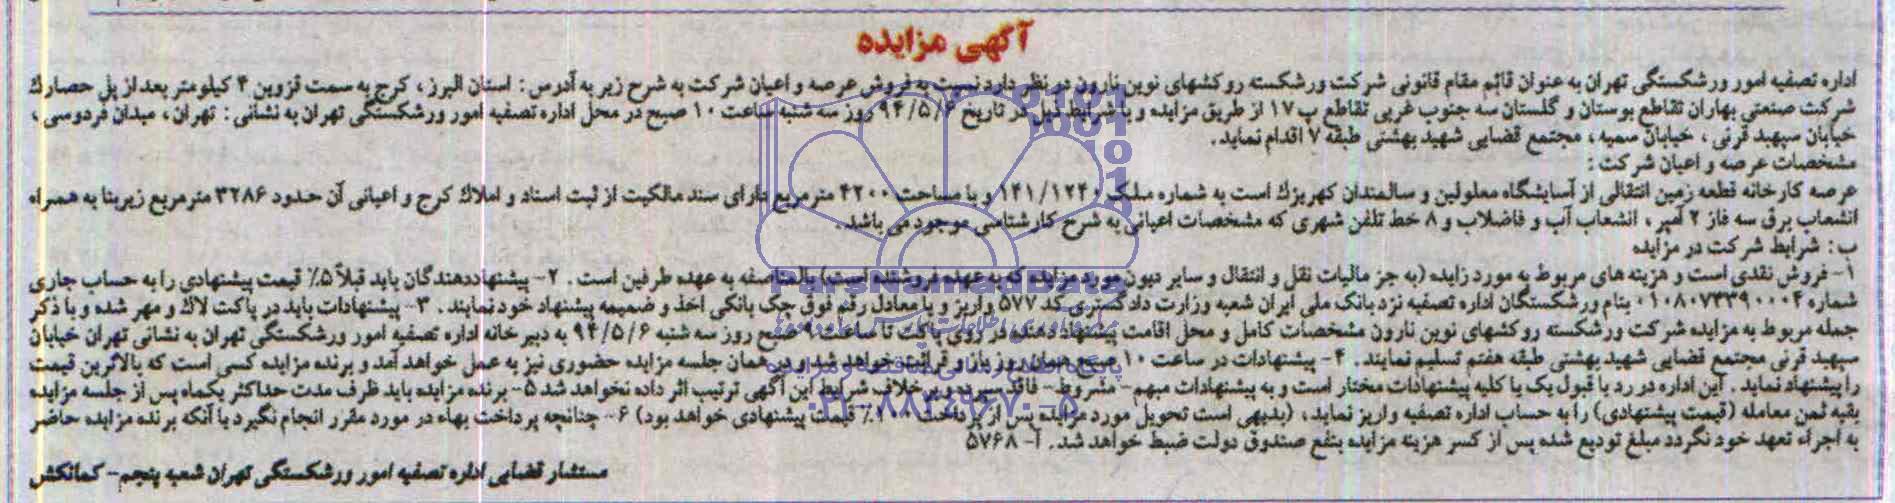 آگهی مزایده
اداره تصفیه امور ورشکستگی تهران به عنوان قائم مقام قانونی شرکت ورشکسته روکشهای نوین نارون در نظر دارد نسبت به فروش عرصه و اعیان شرکت به شرح زیر به آدرس : استان البرز ، کرج به سمت قزوین ۴ کیلومتر بعد از پل حصارک
شرکت صنعتی بهاران تقاطع بوستان و گلستان سه جنوب غربی تقاطع پ ۱۷ از طریق مزایده و با شرایط ذیل در تاریخ ۹۴/۵/۶ روز سه شنبه ساعت ۱۰ صبح در محل اداره تصفیه امور ورشکستگی تهران به نشانی : تهران ، میدان فردوسی ،
خیابان سپهبد قرنی ، خیابان سمیه ، مجتمع قضایی شهید بهشتی طبقه ۷ اقدام نماید.
مشخصات عرصه و اعیان شرکت :
عرصه کارخانه قطعه زمین انتقالی از آسایشگاه معلولین و سالمندان کهریزک است به شماره ملک ۱۴۱/۱۲۴۰ و با مساحت ۴۲۰۰ مترمربع دارای سند مالکیت از ثبت اسناد و املاک کرج و اعیانی آن حدود ۳۲۸۶ مترمربع زیربنا به همراه
انشعاب برق سه فاز ۲ آمپر ، انشعاب آب و فاضلاب و ۸ خط تلفن شهری که مشخصات اعیانی به شرح کارشناسی موجود می باشد.
ب : شرایط شرکت در مزایده
۱- فروش نقدی است و هزینه های مربوط به مورد زایده (به جز مالیات نقل و انتقال و سایر دیون مورد مزایده که به عهده فروشنده است) بالمناصفه به عهده طرفین است . ۲- پیشنهاددهندگان باید قبلاً ۵٪ قیمت پیشنهادی را به حساب جاری
شماره ۰۱۰۸۰۷۳۳۹۰۰۰۴ بنام ورشکستگان اداره تصفیه نزد بانک ملی ایران شعبه وزارت دادگستری کد ۵۷۷ واریز و یا معادل رقم فوق چک بانکی اخذ و ضمیمه پیشنهاد خود نمایند . ۳- پیشنهادات باید در پاکت لاک و مهر شده و با ذکر
جمله مربوط به مزایده شرکت ورشکسته روکشهای نوین نارون مشخصات کامل و محل اقامت پیشنهاد دهنده در روی پاکت تا ساعت ۹ صبح روز سه شنبه ۹۴/۵/۶ به دبیرخانه اداره تصفیه امور ورشکستگی تهران به نشانی تهران خیابان
سپهبد قرنی مجتمع قضایی شهید بهشتی طبقه هفتم تسلیم نمایند . ۴- پیشنهادات در ساعت ۱۰ صبح همان روز باز و قرائت خواهد شد و در همان جلسه مزایده حضوری نیز به عمل خواهد آمد و برنده مزایده کسی است که بالاترین قیمت
را پیشنهاد نماید . این اداره در رد یا قبول یک یا کلیه پیشنهادات مختار است و به پیشنهادات مبهم - مشروط - فاقد سپرده و برخلاف شرایط این آگهی ترتیب اثر داده نخواهد شد ۵- برنده مزایده باید ظرف مدت حداکثر یکماه پس از جلسه مزایده
بقیه ثمن معامله (قیمت پیشنهادی) را به حساب اداره تصفیه واریز نماید ، (بدیهی است تحویل مورد مزایده پس از پرداخت ۱۰۰٪ قیمت پیشنهادی خواهد بود) ۶- چنانچه پرداخت بهاء در مورد مقرر انجام نگیرد یا آنکه برنده مزایده حاضر
به اجراء تعهد خود نگردد مبلغ تودیع شده پس از کسر هزینه مزایده بنفع صندوق دولت ضبط خواهد شد. آ- ۵۷۶۸
مستشار قضایی اداره تصفیه امور ورشکستگی تهران شعبه پنجم - کمانکش
ParsNamadData
پایگاه اطلاع رسانی مناقصه و مزایده
۰۲۱-۸۸۳۴۹۶۷۰-۵